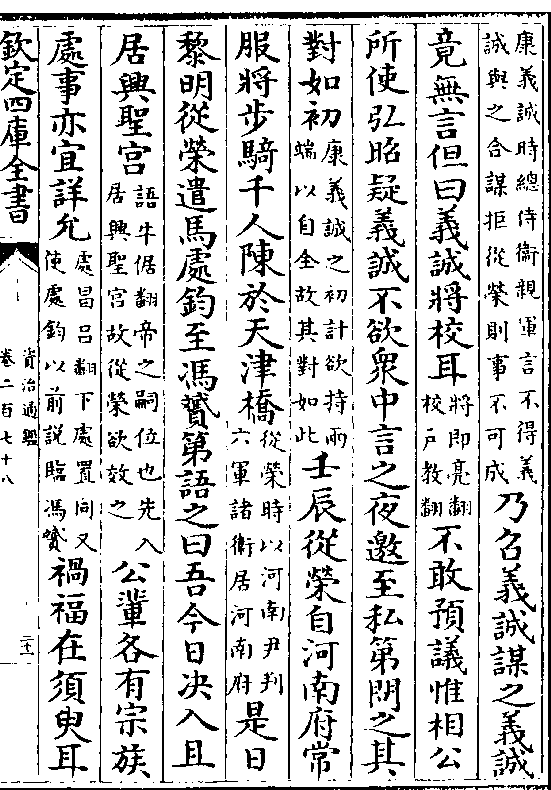 康義誠時總侍衛親軍言不得義誠與之合謀拒從榮則事不可成乃召義誠謀之義誠
竟無言但曰義誠將校耳將即亮翻校戸教翻不敢預議惟相公
所使弘昭疑義誠不欲衆中言之夜邀至私第問之其
對如初康義誠之初計欲持兩端以自全故其對如此壬辰從榮自河南府常
服將步騎千人陳於天津橋從榮時以河南尹判六軍諸衛居河南府是日
黎明從榮遣馬處鈞至馮贇第語之曰吾今日决入且
居興聖宫語牛倨翻帝之嗣位也先入居興聖宫故從榮欲效之公輩各有宗族
處事亦宜詳允處昌吕翻下處置同又使處鈞以前説臨馮贇禍福在須臾耳
欽定四庫全書
資治通鑑
卷二百七十八